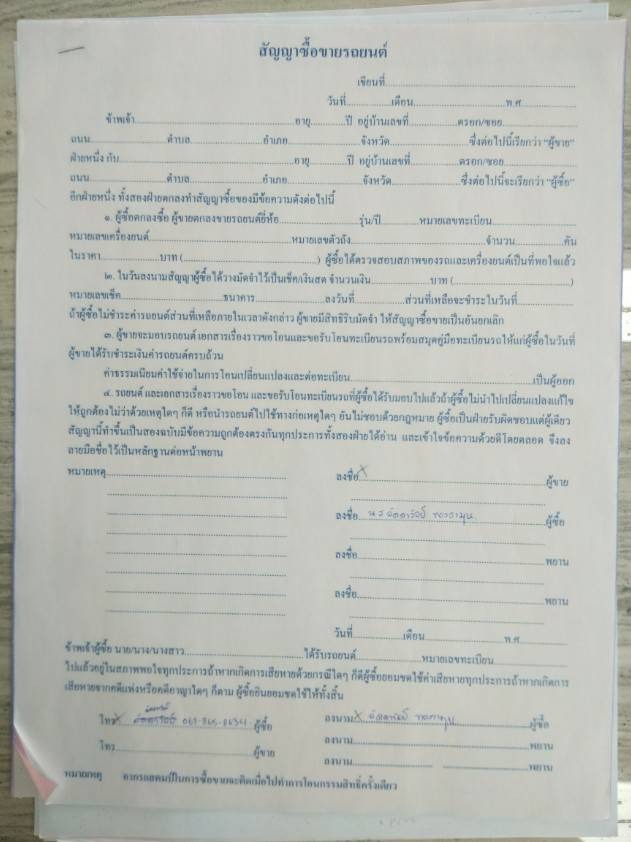 สัญญาซื้อขายรถยนต์
เขียนที่
วันที่ เดือน พ.ศ
ข้าพเจ้า อายุ ปี อยู่บ้านเลขที่ ตรอก/ซอย
ถนน ตำบล อำเภอ จังหวัด ซึ่งต่อไปนี้เรียกว่า “ผู้ขาย”
ฝ่ายหนึ่ง กับ อายุ ปี อยู่บ้านเลขที่ ตรอก/ซอย
ถนน ตำบล อำเภอ จังหวัด ซึ่งต่อไปนี้จะเรียกว่า “ผู้ซื้อ”
อีกฝ่ายหนึ่ง ทั้งสองฝ่ายตกลงทำสัญญาซื้อของมีข้อความดังต่อไปนี้
๑. ผู้ซื้อตกลงซื้อ ผู้ขายตกลงขายรถยนต์ยี่ห้อ รุ่น/ปี หมายเลขทะเบียน
หมายเลขเครื่องยนต์ หมายเลขตัวถัง จำนวน คัน
ในราคา บาท ( ) ผู้ซื้อได้ตรวจสอบสภาพของรถและเครื่องยนต์เป็นที่พอใจแล้ว
๒. ในวันลงนามสัญญาผู้ซื้อได้วางมัดจำไว้เป็นเช็ค/เงินสด จำนวนเงิน บาท ( )
หมายเลขเช็ค ธนาคาร ลงวันที่ ส่วนที่เหลือจะชำระในวันที่
ถ้าผู้ซื้อไม่ชำระค่ารถยนต์ส่วนที่เหลือภายในเวลาดังกล่าว ผู้ขายมีสิทธิริบมัดจำ ให้สัญญาซื้อขายเป็นอันยกเลิก
๓. ผู้ขายจะมอบรถยนต์ เอกสารเรื่องราวขอโอนและขอรับโอนทะเบียนรถพร้อมสมุดคู่มือทะเบียนรถให้แก่ผู้ซื้อในวันที่
ผู้ขายได้รับชำระเงินค่ารถยนต์ครบถ้วน
ค่าธรรมเนียมค่าใช้จ่ายในการโอนเปลี่ยนแปลงและต่อทะเบียน เป็นผู้ออก
๔. รถยนต์ และเอกสารเรื่องราวขอโอน และขอรับโอนทะเบียนรถที่ผู้ซื้อได้รับมอบไปแล้วถ้าผู้ซื้อไม่นำไปเปลี่ยนแปลงแก้ไข
ให้ถูกต้องไม่ว่าด้วยเหตุใดๆ ก็ดี หรือนำรถยนต์ไปใช้ทางก่อเหตุใดๆ อันไม่ชอบด้วยกฎหมาย ผู้ซื้อเป็นฝ่ายรับผิดชอบแต่ผู้เดียว
สัญญานี้ทำขึ้นเป็นสองฉบับมีข้อความถูกต้องตรงกันทุกประการทั้งสองฝ่ายได้อ่าน และเข้าใจข้อความด้วยดีโดยตลอด จึงลง
ลายมือชื่อไว้เป็นหลักฐานต่อหน้าพยาน
หมายเหตุ ลงชื่อ X ผู้ขาย
ลงชื่อ น.ส ผู้ซื้อ
ลงชื่อ พยาน
ลงชื่อ พยาน
วันที่ เดือน พ.ศ
ข้าพเจ้าผู้ซื้อ นาย/นาง/นางสาว ได้รับรถยนต์ หมายเลขทะเบียน
ไปแล้วอยู่ในสภาพพอใจทุกประการถ้าหากเกิดการเสียหายด้วยกรณีใดๆ ก็ดีผู้ซื้อยอมชดใช้ค่าเสียหายทุกประการถ้าหากเกิดการ
เสียหายจากคดีแพ่งหรือคดีอาญาใดๆ ก็ตาม ผู้ซื้อยินยอมชดใช้ให้ทั้งสิ้น
โทร X ผู้ซื้อ ลงนาม X ผู้ซื้อ
โทร ผู้ขาย ลงนาม พยาน
ลงนาม พยาน
หมายเหตุ อากรแสตมป์ในการซื้อขายจะติดเมื่อไปทำการโอนกรรมสิทธิ์ครั้งเดียว